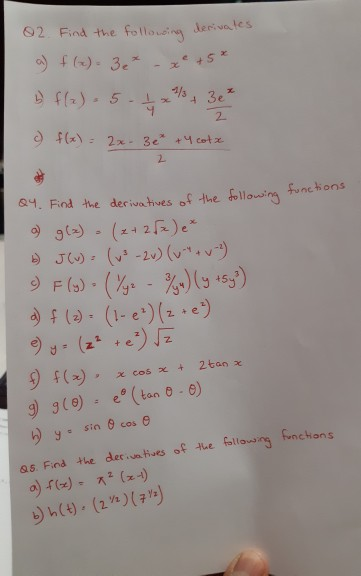 Q2. Find the following derivates
a) f(x) = 3eˣ - xᵉ + 5ˣ
b) f(x) = 5 - 1/4 x^2/3 + 3eˣ/2
c) f(x) = (2x - 3eˣ + 4 cotx)/2
Q4. Find the derivatives of the following functions
a) g(x) = (x + 2√x) eˣ
b) J(v) = (v³ - 2v)(v⁻⁴ + v⁻²)
c) F(y) = (1/y² - 3/y⁴)(y + 5y³)
d) f(z) = (1 - eᶻ)(z + eᶻ)
e) y = (z² + eᶻ) √z
f) f(x) = x cos x + 2tan x
g) g(θ) = e^θ (tan θ - θ)
h) y = sin θ cos θ
Q5. Find the derivatives of the following functions
a) f(x) = π² (x-1)
b) h(t) = (2^1/2)(7^1/2)